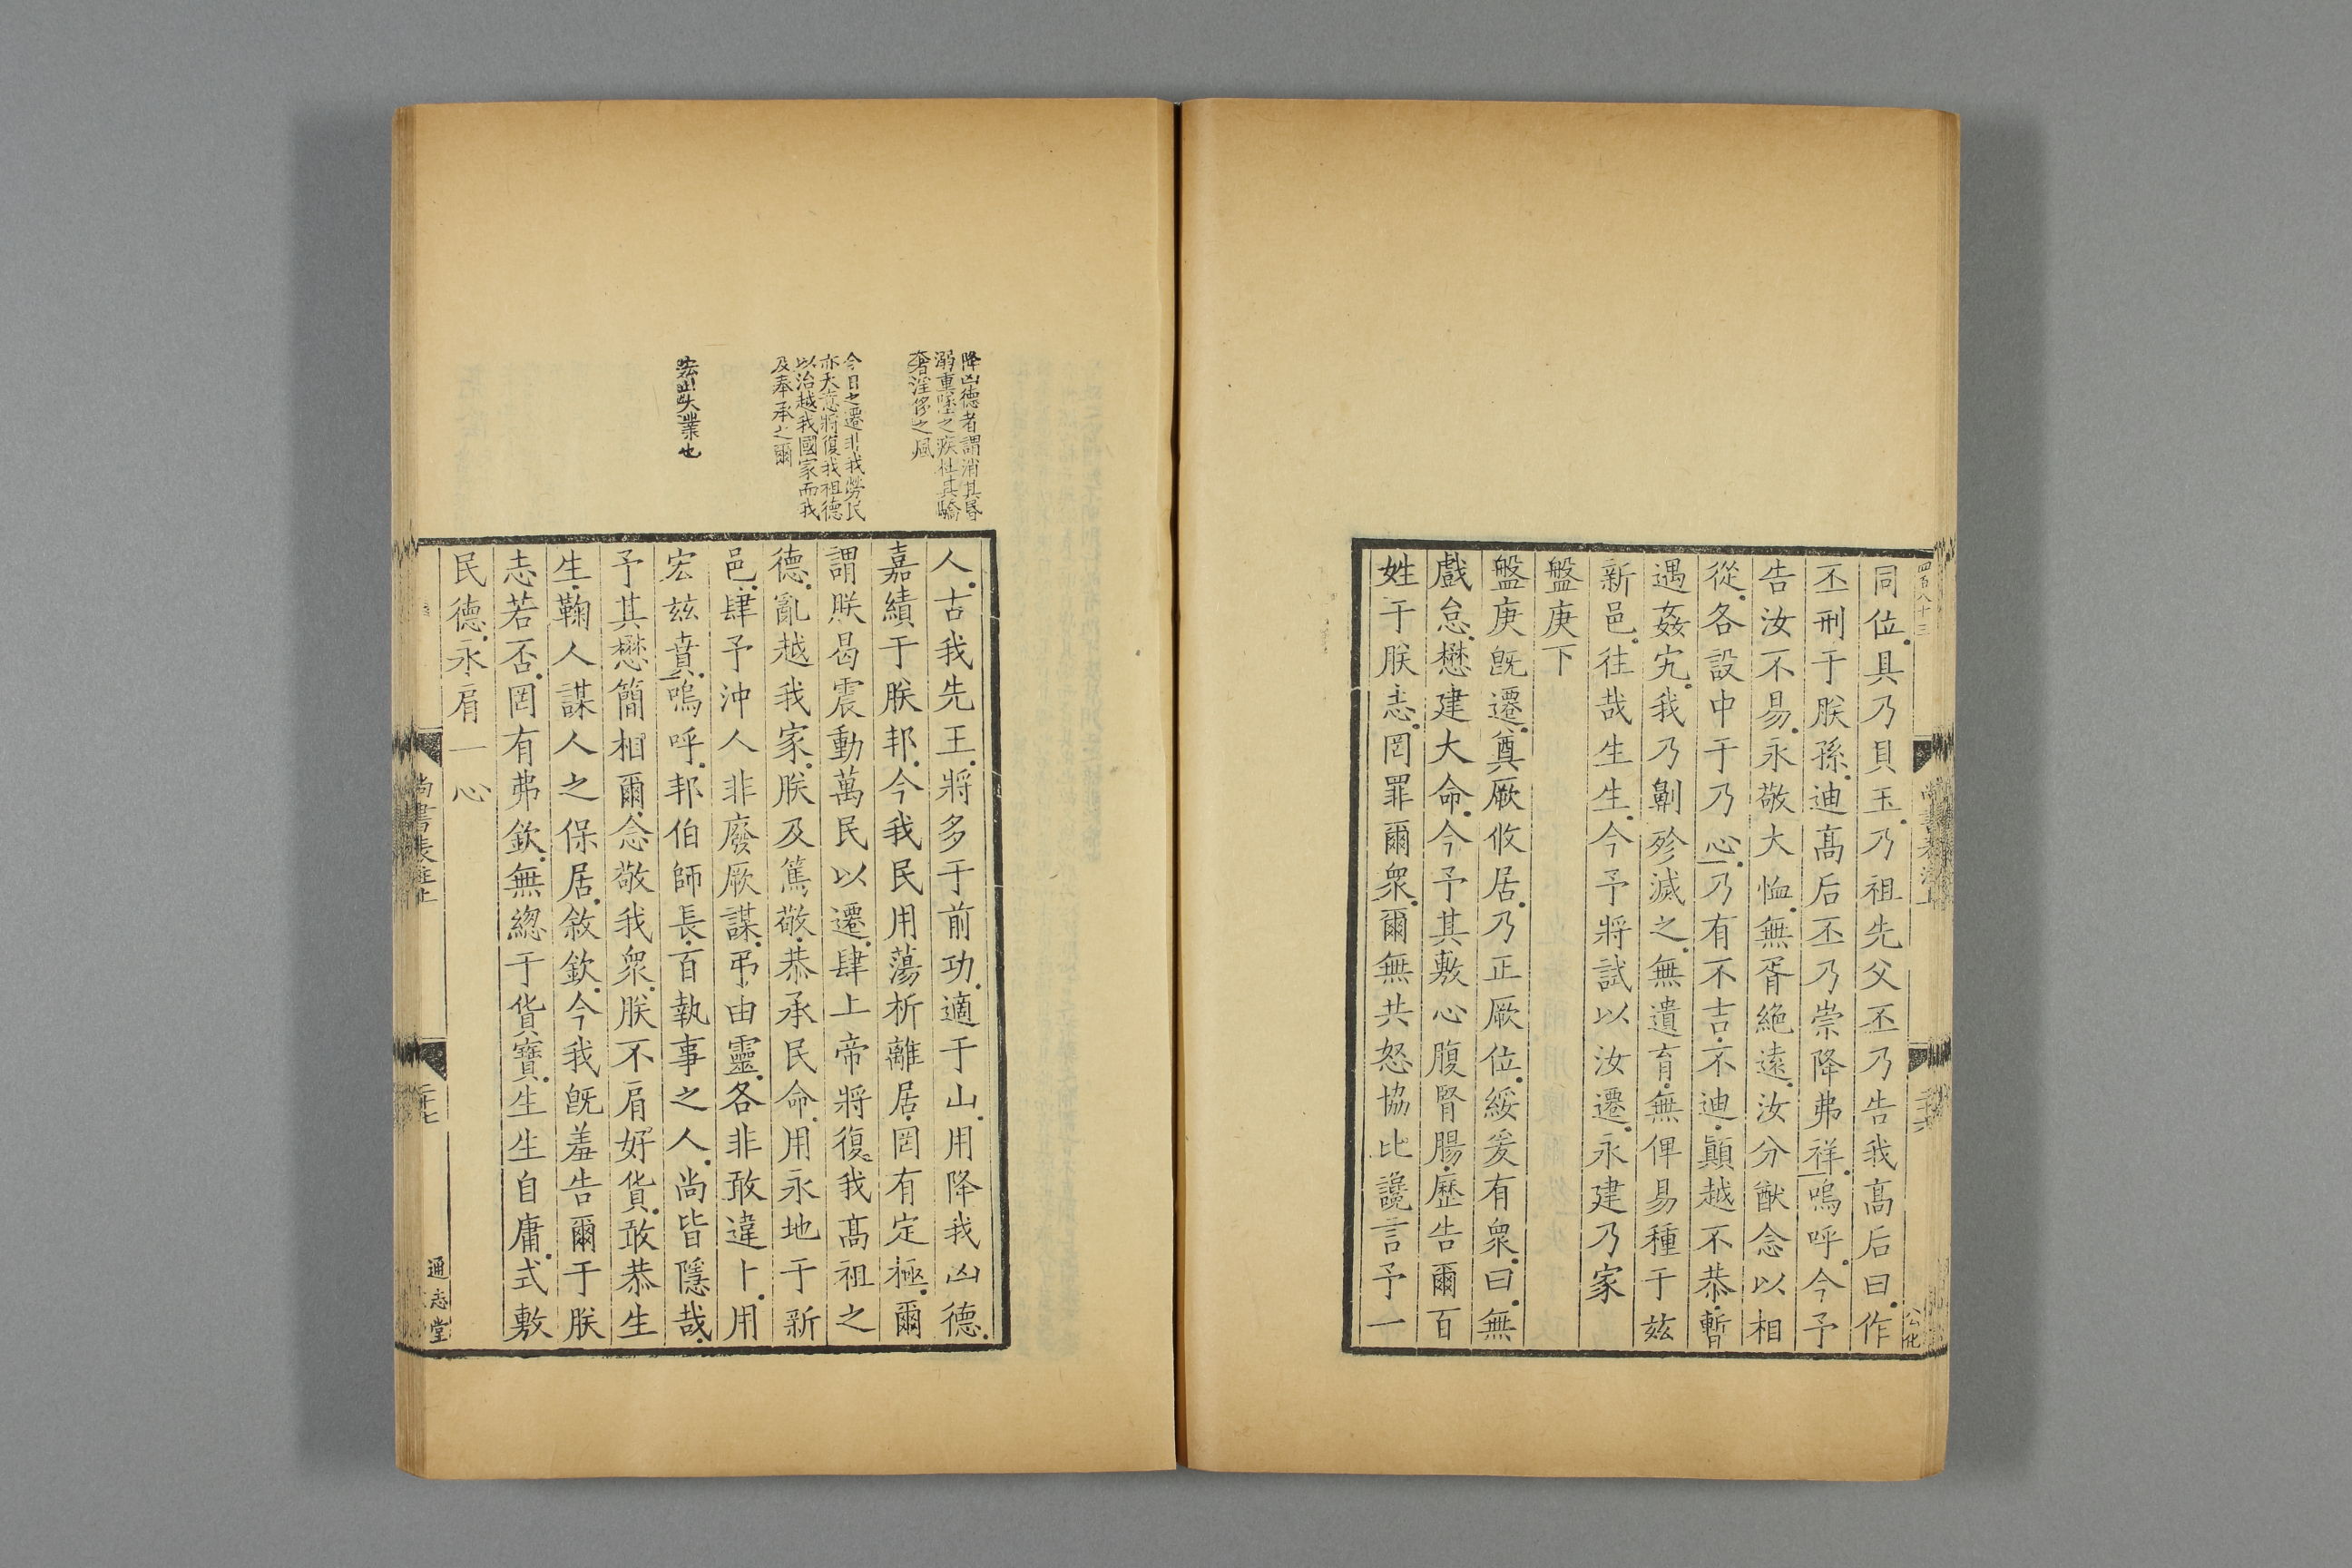 四百八十三
同位具乃貝玉乃祖先父丕乃告我髙后曰作
丕刑于朕孫迪髙后丕乃崇降弗祥嗚呼今予
告汝不易永敬大恤無胥絶遠汝分猷念以相
從各設中于乃心乃有不吉不迪顚越不恭暫
遇姦宄我乃劓殄滅之無遺育無俾易種于兹
新邑徃哉生生今予將試以汝遷永建乃家
盤庚下
盤庚旣遷奠厥攸居乃正厥位綏爰有衆曰無
戲怠懋建大命今予其敷心腹腎腸歷告爾百
姓于朕志罔罪爾衆爾無共怒協比讒言予一
降凶徳者謂消其昬
溺重膇之疾杜其驕
奢淫侈之風
今日之遷非我勞民
亦天意將復我祖德
以治越我國家而我
及奉承之爾
宏兹大業也
人古我先王將多于前功適于山用降我凶德
嘉績于朕邦今我民用蕩析離居罔有定極爾
謂朕曷震動萬民以遷肆上帝將復我髙祖之
德亂越我家朕及篤敬恭承民命用永地于新
邑肆予沖人非廢厥謀弔由靈各非敢違卜用
宏兹賁嗚呼邦伯師長百執事之人尚皆隱哉
予其懋簡相爾念敬我衆朕不肩好貨敢恭生
生鞠人謀人之保居敘欽今我旣羞告爾于朕
志若否罔有弗欽無緫于貨寶生生自庸式敷
民德永肩一心
尚書表注上
二十七
通志堂